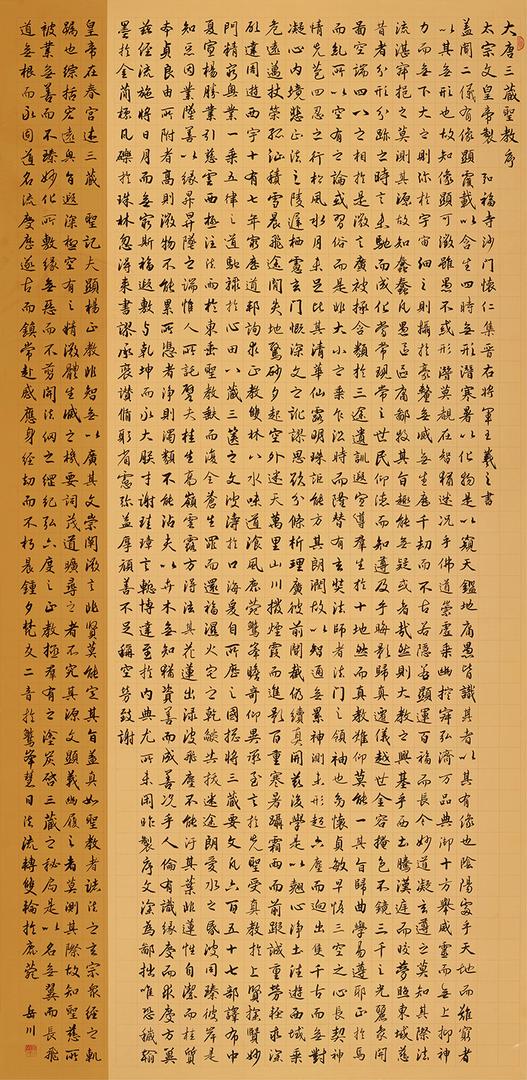 大唐三藏聖教序
太宗文皇帝製 弘福寺沙門懷仁集晉右將軍王羲之書
蓋聞二儀有像顯覆載以含生四時無形潛寒暑以化物是以窺天鑑地庸愚皆識其者以其有像也陰陽處乎天地而難窮者
以其無形也故知像顯可徵雖愚不惑形潛莫覩在智猶迷況乎佛道崇虛乘幽控寂弘濟万品典御十方舉威靈而無上抑神
力而無下大之則弥於宇宙細之則攝於豪釐無滅無生歷千劫而不古若隱若顯運百福而長今妙道凝玄遵之莫知其際法
流湛寂挹之莫測其源故知蠢蠢凡愚區區庸鄙投其旨趣能無疑或者哉然則大教之興基乎西土騰漢庭而皎夢照東域慈
昔者分形分跡之時言未馳而成化當常現常之世民仰德而知遵及乎晦影歸真遷儀越世金容掩色不鏡三千之光麗象開
圖空端四八之相於是微言廣被拯含類於三途遺訓遐宣導群生於十地然而真教難仰莫能一其旨歸曲學易遵邪正於焉
而乱所以空有之論或習俗而是非大小之乘乍沿時而隆替有玄奘法師者法門之領袖也幼懷貞敏早悟三空之心長契神
情先苞四忍之行松風水月未足比其清華仙露明珠詎能方其朗潤故以智通無累神測未形超六塵而迥出隻千古而無對
凝心內境悲正法之陵遲栖慮玄門慨深文之訛謬思欲分條析理廣彼前聞截偽續真開茲後學是以翹心淨土法遊西域乘
危遠邁杖策孤征積雪晨飛途間失地驚砂夕起空外迷天萬里山川撥煙霞而進影百重寒暑躡霜雨而前蹤誠重勞輕求深
願達周遊西宇十有七年窮歷道邦詢求正教雙林八水味道湌風鹿菀鷲峯瞻奇仰異承至言於先聖受真教於上賢探賾妙
門精窮奧業一乘五律之道馳驟於心田八藏三篋之文波濤於口海爰自所歷之國揔將三藏要文凡六百五十七部譯布中
夏宣楊勝業引慈雲於西極注法雨於東垂聖教缺而復全蒼生罪而還福濕火宅之乾燄共拔迷途朗愛水之昏波同臻彼岸是
知惡因業墜善以緣昇昇墜之端惟人所託譬夫桂生高嶺雲露方得泫其花蓮出淥波飛塵不能汙其葉非蓮性自潔而桂質
本貞良由所附者高則微物不能累所憑者淨則濁類不能沾夫以卉木無知猶資善而成善況乎人倫有識不緣慶而求慶方冀
茲經流施將日月而無窮斯福遐敷与乾坤而永大朕才謝珪璋言慙博達至於內典尤所未閑昨製序文深為鄙拙唯恐穢翰
墨於金簡標瓦礫於珠林忽得來書謬承褒讚循躬省慮弥益厚顏善不足稱空勞致謝
皇帝在春宮述三藏 聖記夫顯楊正教非智無以廣其文崇闡微言非賢莫能定其旨蓋真如聖教者諸法之玄宗眾經之軌
躅也綜括宏遠奧旨遐深極空有之精微體生滅之機要詞茂道曠尋之者不究其源文顯義幽履之者莫測其際故知聖慈所
被業無善而不臻妙化所敷緣無惡而不翦開法網之綱紀弘六度之正教拯群有之塗炭啓三藏之秘扃是以名無翼而長飛
道無根而永固道名流慶歷遂古而鎮常赴感應身經劫而不朽晨鍾夕梵交二音於鷲峯慧日法流轉雙輪於鹿菀 岳川